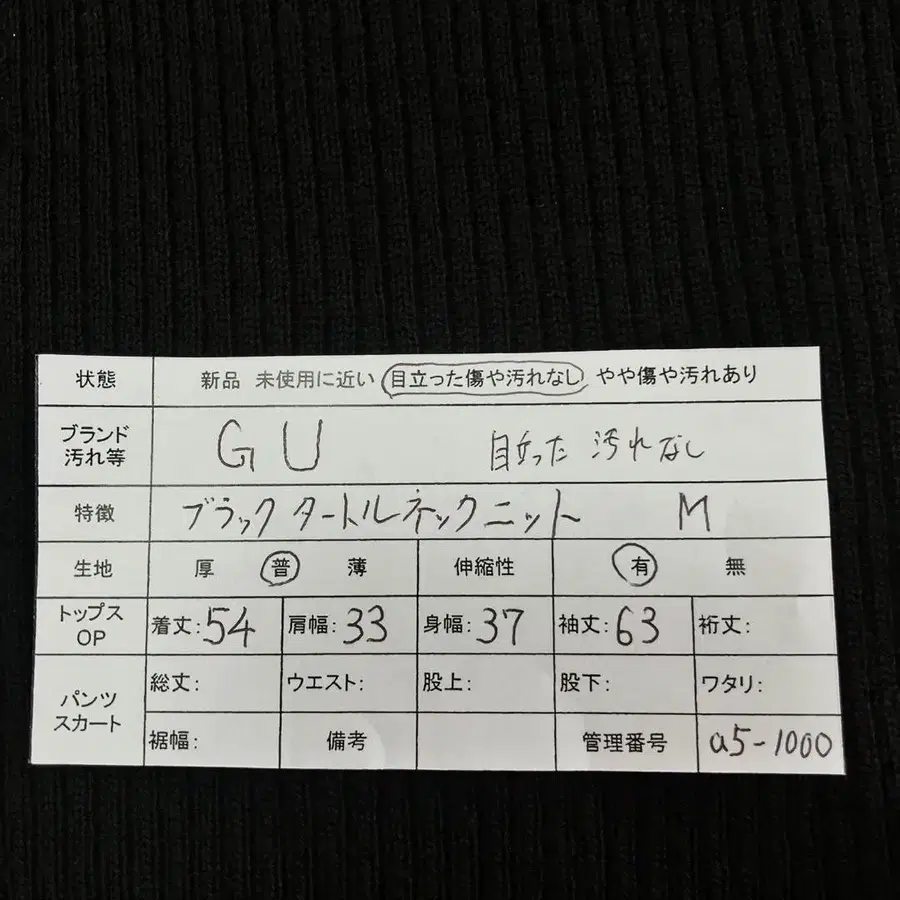 状態 新品 未使用に近い 目立った傷や汚れなし やや傷や汚れあり
ブランド
汚れ等 GU 目立った 汚れなし
特徴 ブラックタートルネックニット M
生地 厚 普 薄 伸縮性 有 無
トップス
OP 着丈:54 肩幅:33 身幅:37 袖丈:63 裄丈:
パンツ
スカート 総丈: ウエスト: 股上: 股下: ワタリ:
裾幅: 備考 管理番号 a5-1000